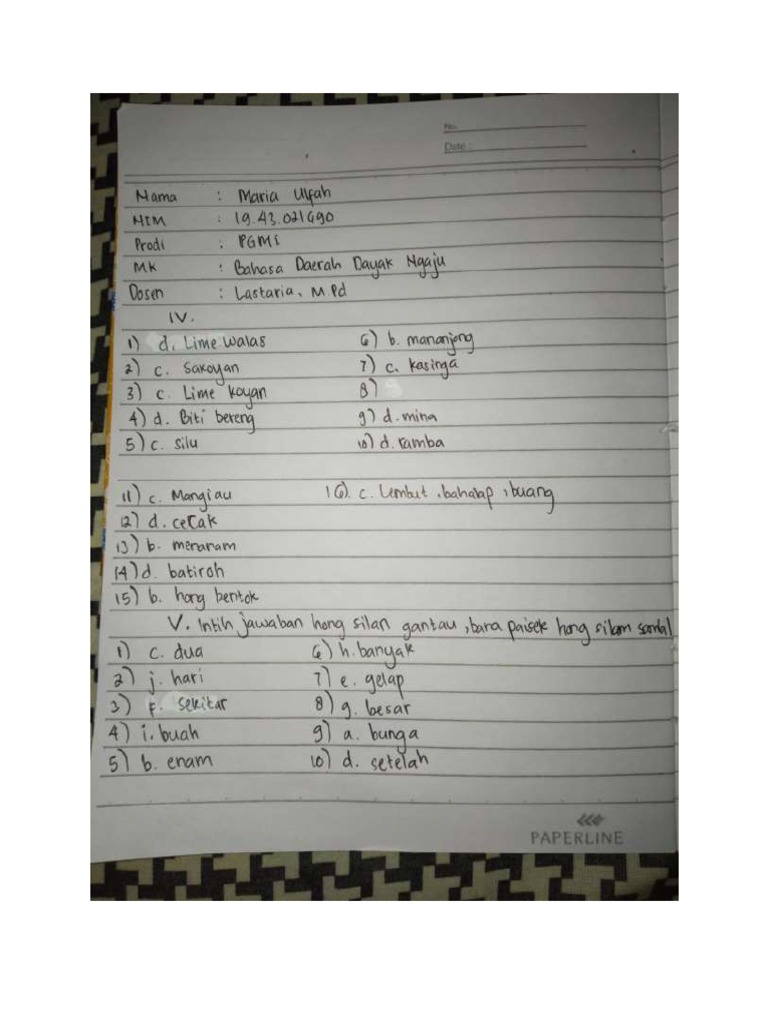 No.
Date :
Nama : Maria Ulfah
NIM : 19.43.021690
Prodi : PGMi
MK : Bahasa Daerah Dayak Ngaju
Dosen : Lastaria, M Pd
IV.
1) d. Lime walas 6) b. mananjong
2) c. Sakoyan 7) c. kasinga
3) c Lime koyan 8)
4) d. Biti bereng 9) d. mina
5) c. silu 10) d. ramba
11) c. Mangiau 16). c. Lembut, bahalap, buang
12) d. cecak
13) b. menanam
14) d. batiroh
15) b. hong bentok
V. Intih jawaban hong silan gantau, bara paisek hong silam
1) c. dua 6) h. banyak
2) j. hari 7) e. gelap
3) F. sekitar 8) g. besar
4) i. buah 9) a. bunga
5) b. enam 10) d. setelah
PAPERLINE